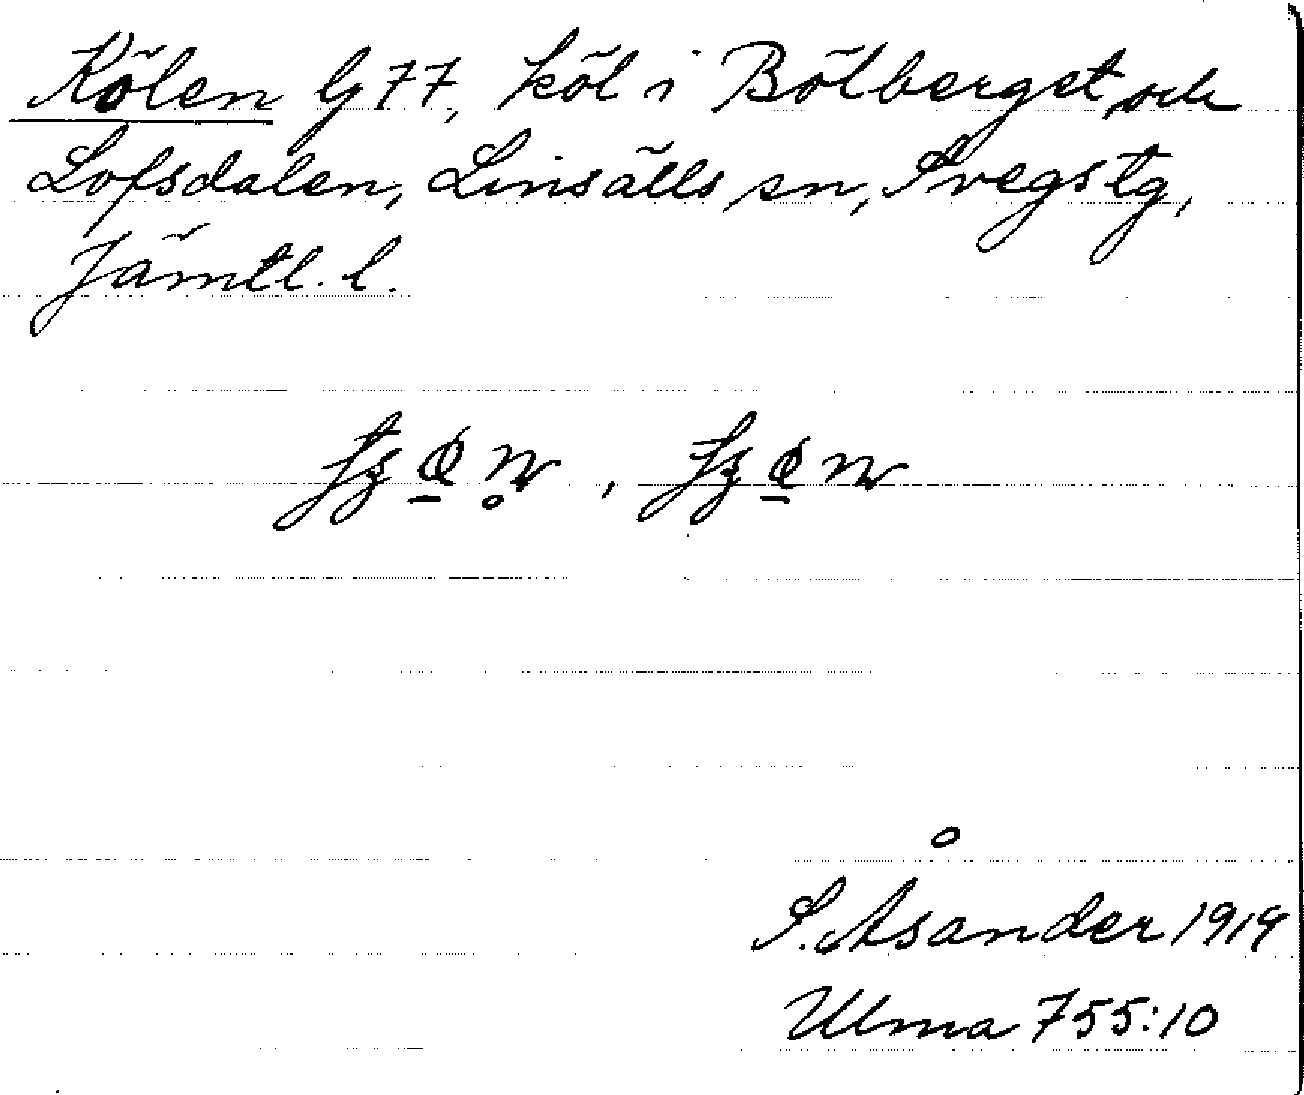 Kölen G 77, köl i Bölberget och
Lofsdalen, Linsälls sn, Svegs tg,
Jämtl. l.
S. Åsander 1919
Ulma 755:10